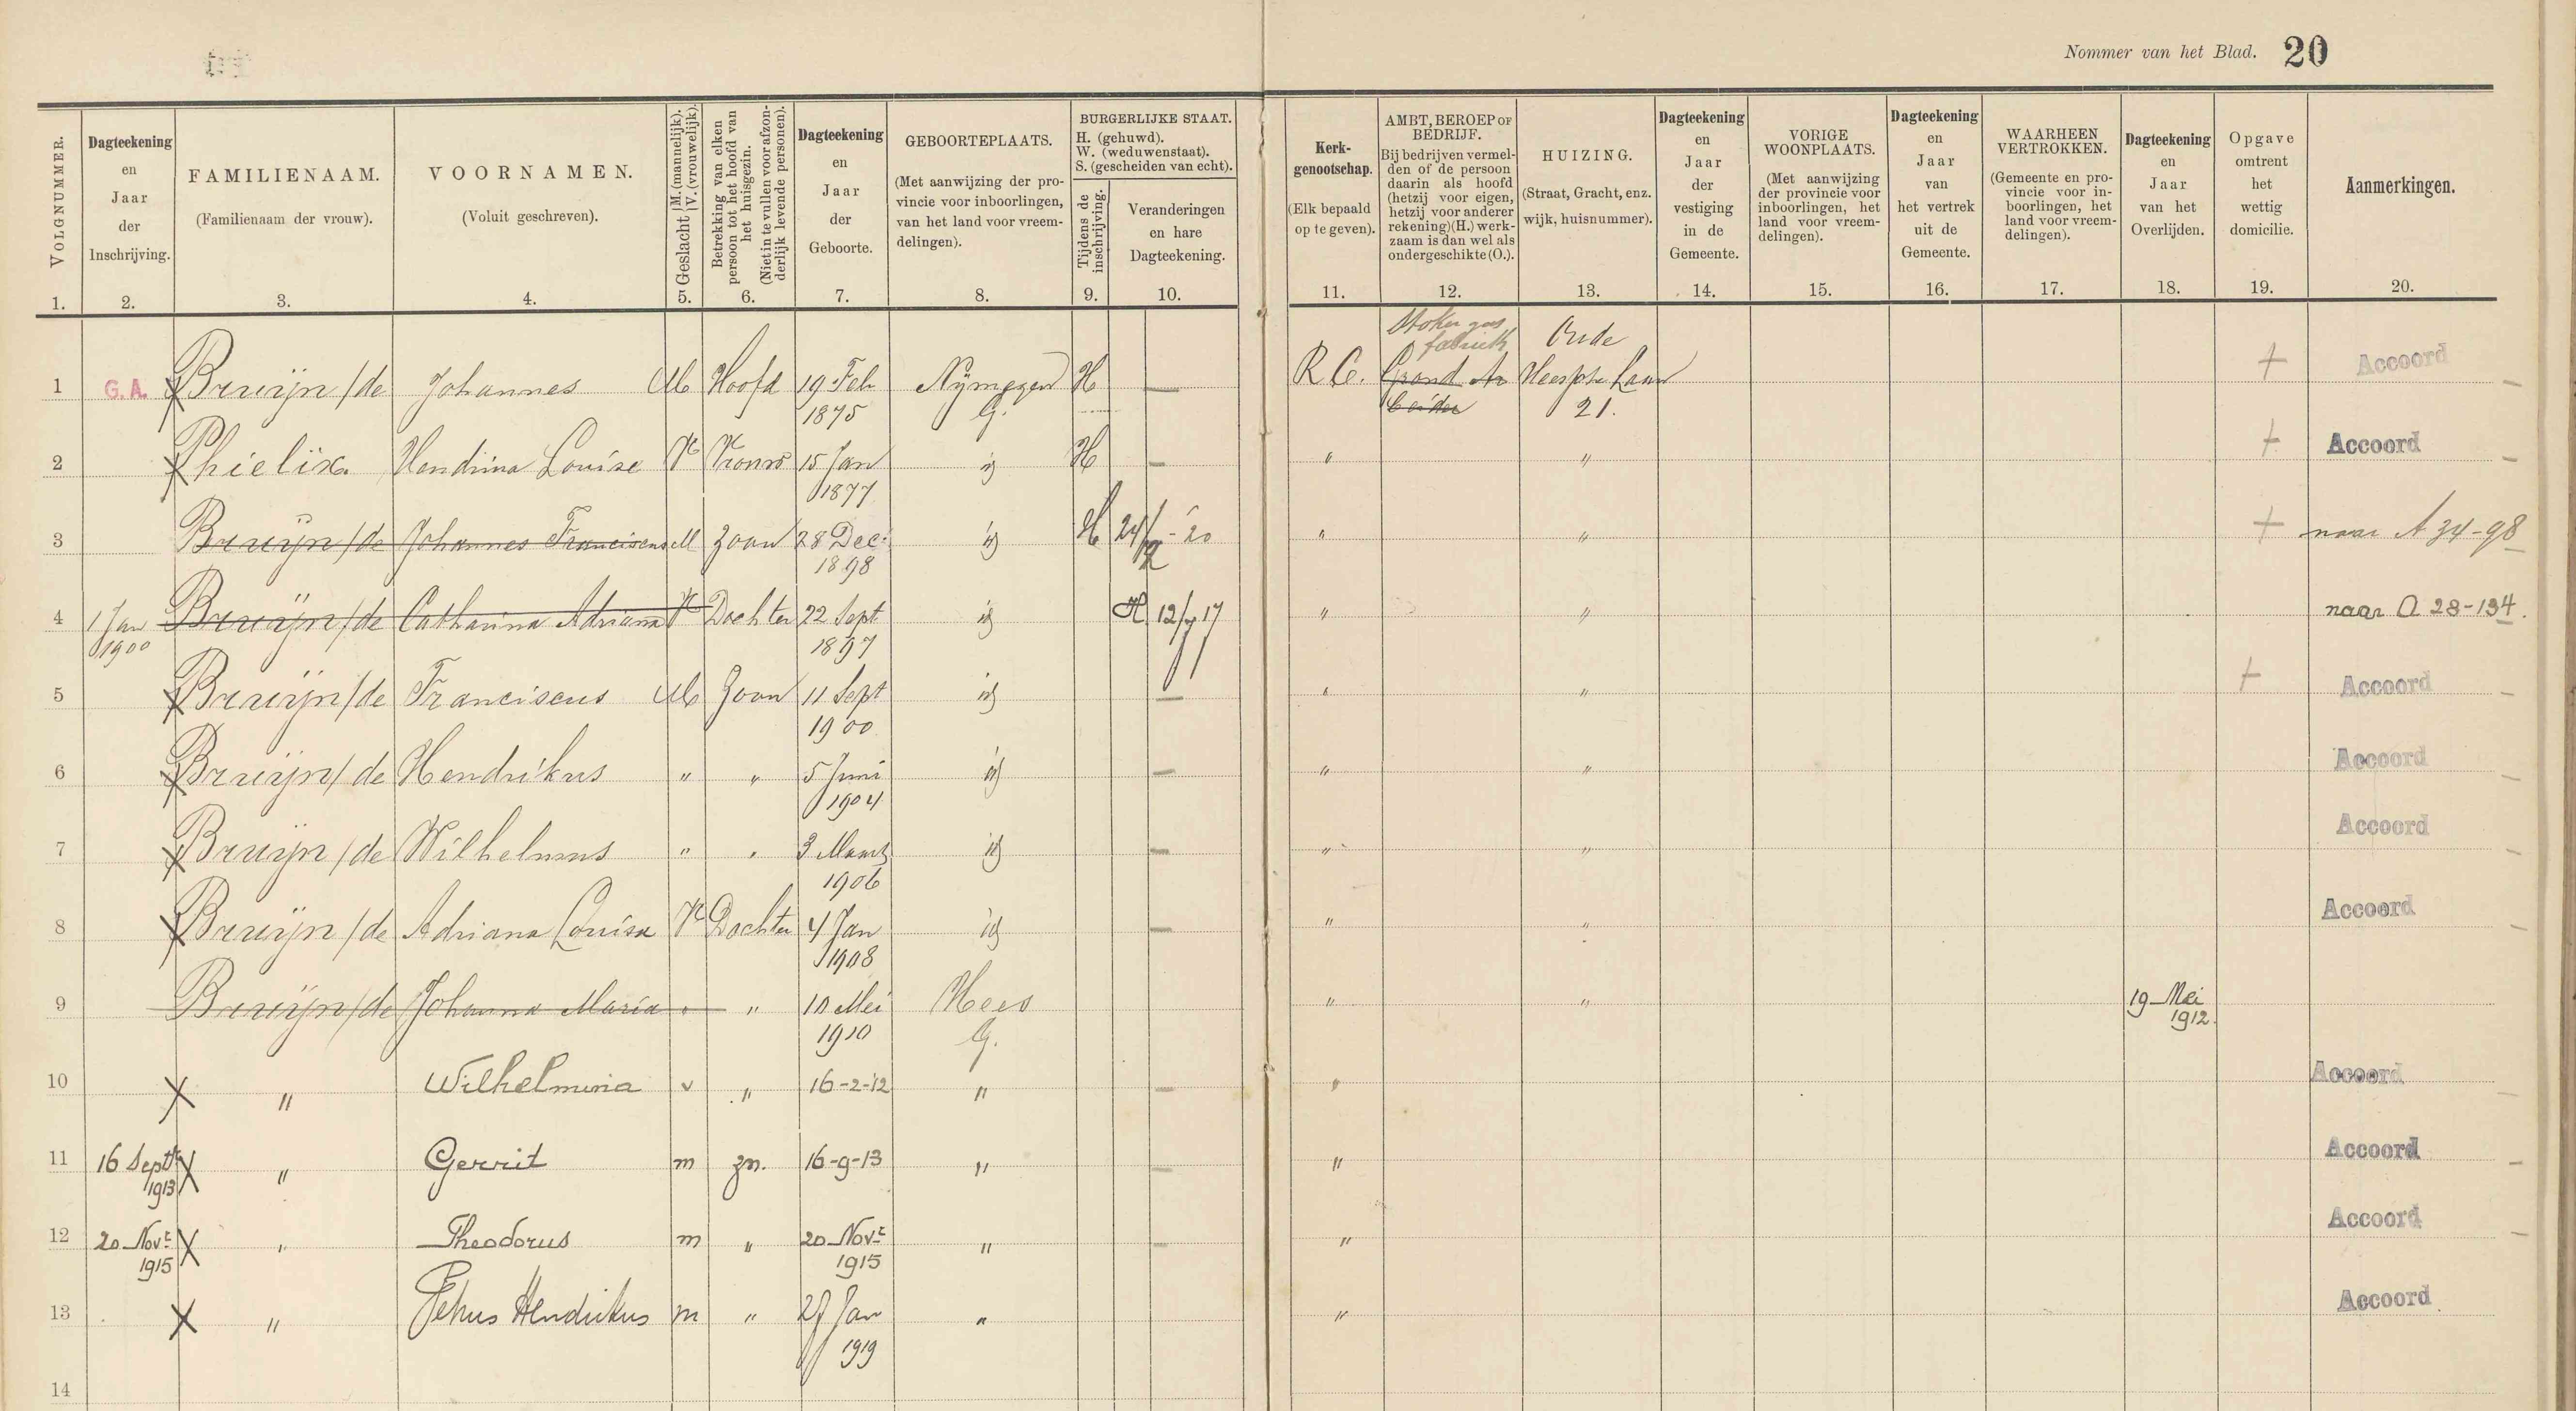 Nommer van het Blad. 20
VOLGNUMMER.
1.
Dagteekening
en
Jaar
der
Inschrijving.
2.
FAMILIENAAM.
(Familienaam der vrouw).
3.
VOORNAMEN.
(Voluit geschreven).
4.
Geslacht M. (mannelijk). V. (vrouwelijk).
5.
Betrekking van elken
persoon tot het hoofd van
het huisgezin.
(Niet in te vullen voor afzon-
derlijk levende personen).
6.
Dagteekening
en
Jaar
der
Geboorte.
7.
GEBOORTEPLAATS.
(Met aanwijzing der pro-
vincie voor inboorlingen,
van het land voor vreem-
delingen).
8.
BURGERLIJKE STAAT.
H. (gehuwd).
W. (weduwenstaat).
S. (gescheiden van echt).
Tijdens de
inschrijving.
9.
Veranderingen
en hare
Dagteekening.
10.
Kerk-
genootschap.
(Elk bepaald
op te geven).
11.
AMBT, BEROEP OF
BEDRIJF.
Bij bedrijven vermel-
den of de persoon
daarin als hoofd
(hetzij voor eigen,
hetzij voor anderer
rekening)(H.) werk-
zaam is dan wel als
ondergeschikte (O.).
12.
HUIZING.
(Straat, Gracht, enz.
wijk, huisnummer).
13.
Dagteekening
en
Jaar
der
vestiging
in de
Gemeente.
14.
VORIGE
WOONPLAATS.
(Met aanwijzing
der provincie voor
inboorlingen, het
land voor vreem-
delingen).
15.
Dagteekening
en
Jaar
van
het vertrek
uit de
Gemeente.
16.
WAARHEEN
VERTROKKEN.
(Gemeente en pro-
vincie voor in-
boorlingen, het
land voor vreem-
delingen).
17.
Dagteekening
en
Jaar
van het
Overlijden.
18.
Opgave
omtrent
het
wettig
domicilie.
19.
Aanmerkingen.
20.
Stoker gas
fabriek Oude
1 G.A. Bruijn/de Johannes M Hoofd 19 Feb Nijmegen H — R C. Grond Ar Heessche Laan + Accoord
1875 G. beider 21.
2 Phielix. Hendrina Louise V Vrouw 15 Jan id H — " " + Accoord
1877
3 Bruijn/de Johannes Franciscus M Zoon 28 Dec. id H 24/12-'20 " " + naar A 34-98
1898
4 1 Jan Bruijn/de Catharina Adriana V Dochter 22 Sept id H 12/7 17 " " naar A 28-134.
1900 1897
5 Bruijn/de Franciscus M Zoon 11 Sept id — " " + Accoord
1900
6 Bruijn/de Hendrikus " " 5 Juni id — " " Accoord
1904
7 Bruijn/de Wilhelmus " " 3 Maart id — " " Accoord
1906
8 Bruijn/de Adriana Louisa V Dochter 4 Jan id — " " Accoord
1908
9 Bruijn/de Johanna Maria " " 10 Mei Hees " " 19 Mei
1910 G. 1912.
10 " Wilhelmina v " 16-2-'12 " — " Accoord
11 16 Septr " Gerrit m zn. 16-9-13 " — " Accoord
1913
12 20 Novr " Theodorus m " 20 Novr " — " Accoord
1915 1915
13 " Petrus Hendrikus m " 27 Jan " " Accoord
1919
14